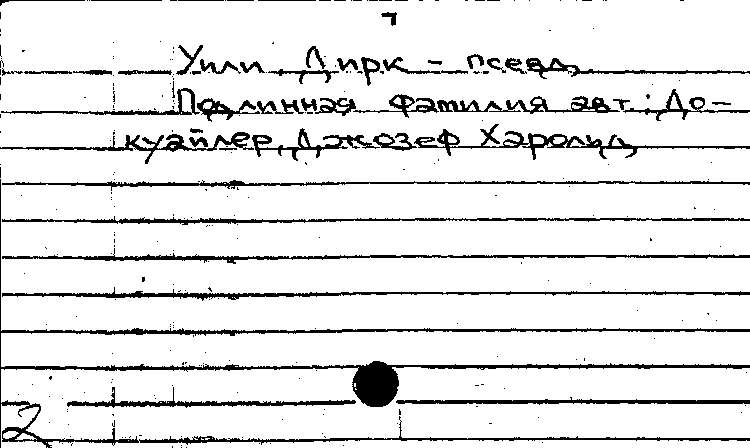 7
Уили, Дирк - псевд.
Подлинная фамилия авт.: До-
куайлер, Джозеф Харольд
2